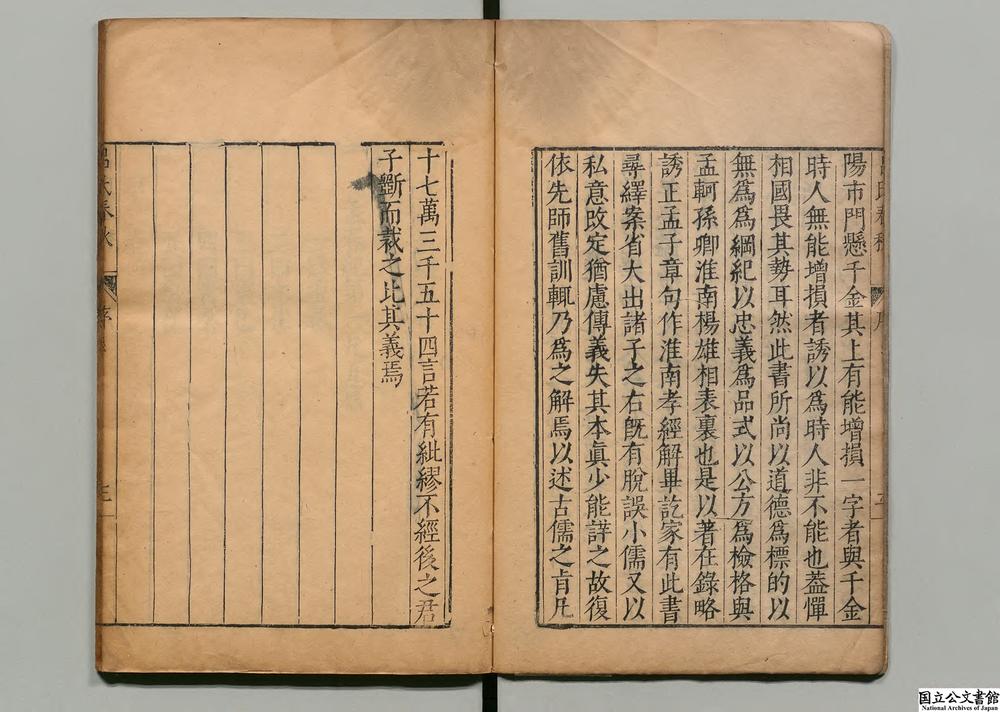 陽市門懸千金其上有能增損一字者與千金
時人無能增損者誘以為時人非不能也蓋憚
相國畏其勢耳然此書所尚以道德為標的以
無為為綱紀以忠義為品式以公方為檢格與
孟軻孫卿淮南楊雄相表裏也是以著在錄略
誘正孟子章句作淮南孝經解畢訖家有此書
尋繹案省大出諸子之右既有脫誤小儒又以
私意改定猶慮傳義失其本真少能詳之故復
依先師舊訓輒乃為之解焉以述古儒之旨凡
十七萬三千五十四言若有紕繆不經後之君
子斷而裁之比其義焉
呂氏春秋
序
三
国立公文書館
National Archives of Japan